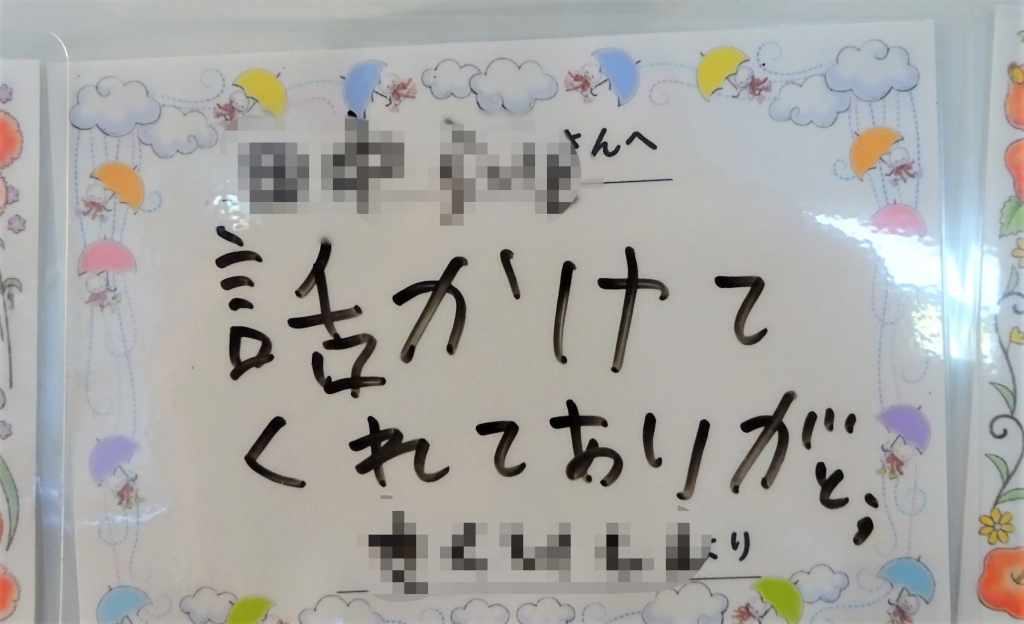 さんへ
話かけて
くれてありがとう
より